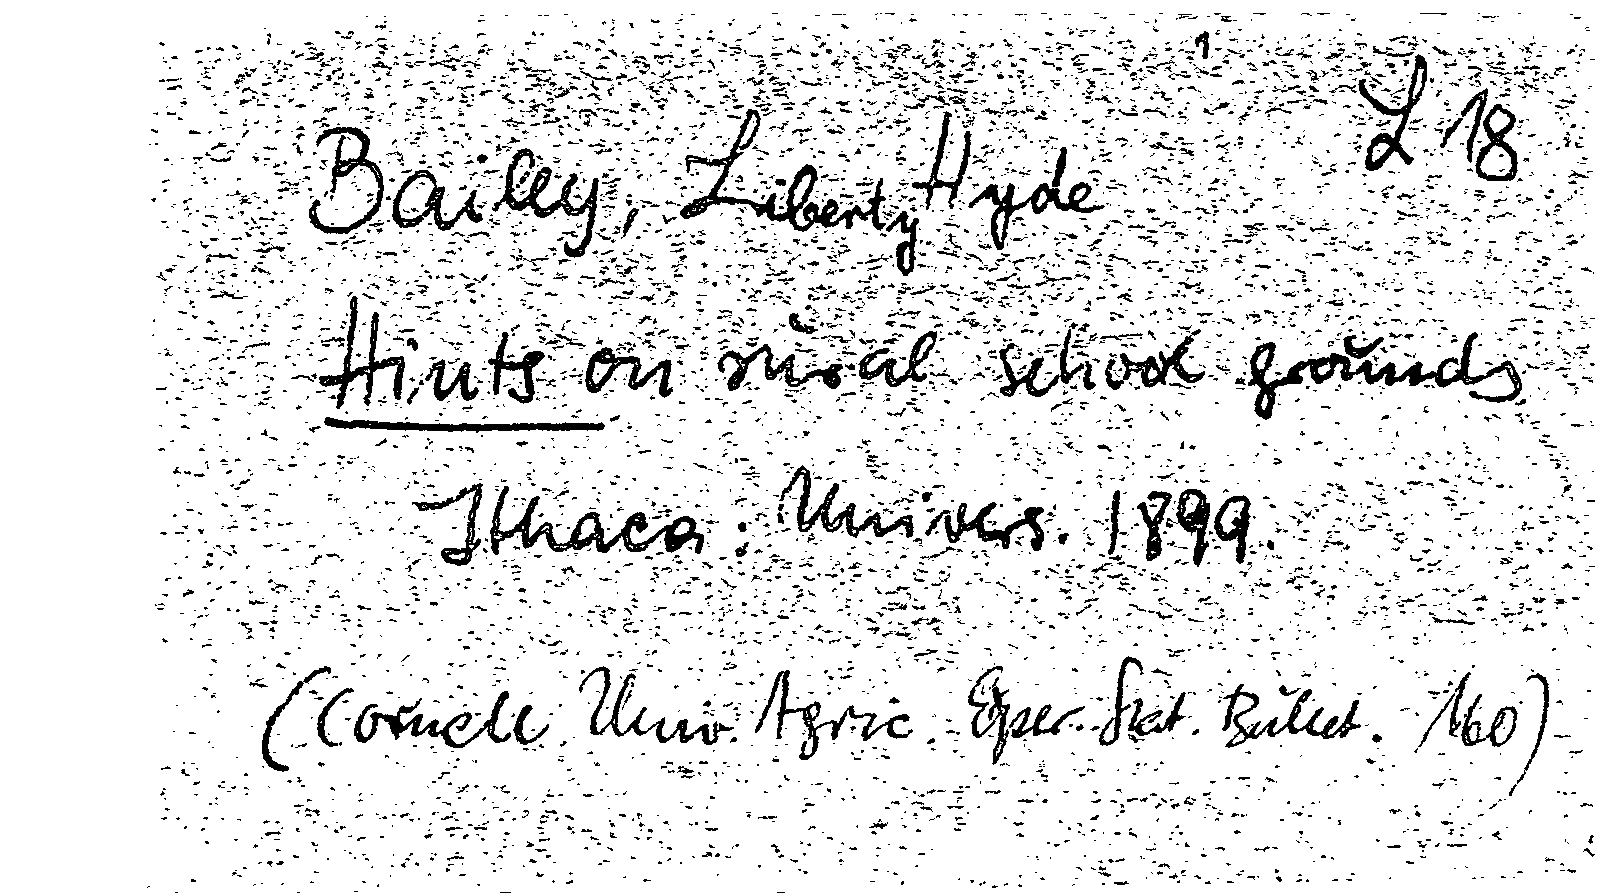 L 18
Bailey, Liberty Hyde
Hints on rural school grounds
Ithaca: Univers. 1899.
(Cornell Univ. Agric. Exper. Stat. Bullet. 160)